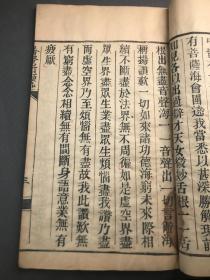 有菩薩海會圍遶我當悉以甚深勝解現前
知見各以出過辯才天女微妙舌根一一舌
根出無盡音聲海一一音聲出一切言辭海
稱揚讚歎一切如來諸功德海窮未來際相
續不斷盡於法界無不周徧如是虛空界盡
眾生界盡眾生業盡眾生煩惱盡我讚乃盡
而虛空界乃至煩惱無有盡故我此讚歎無
有窮盡念念相續無有間斷身語意業無有
疲厭